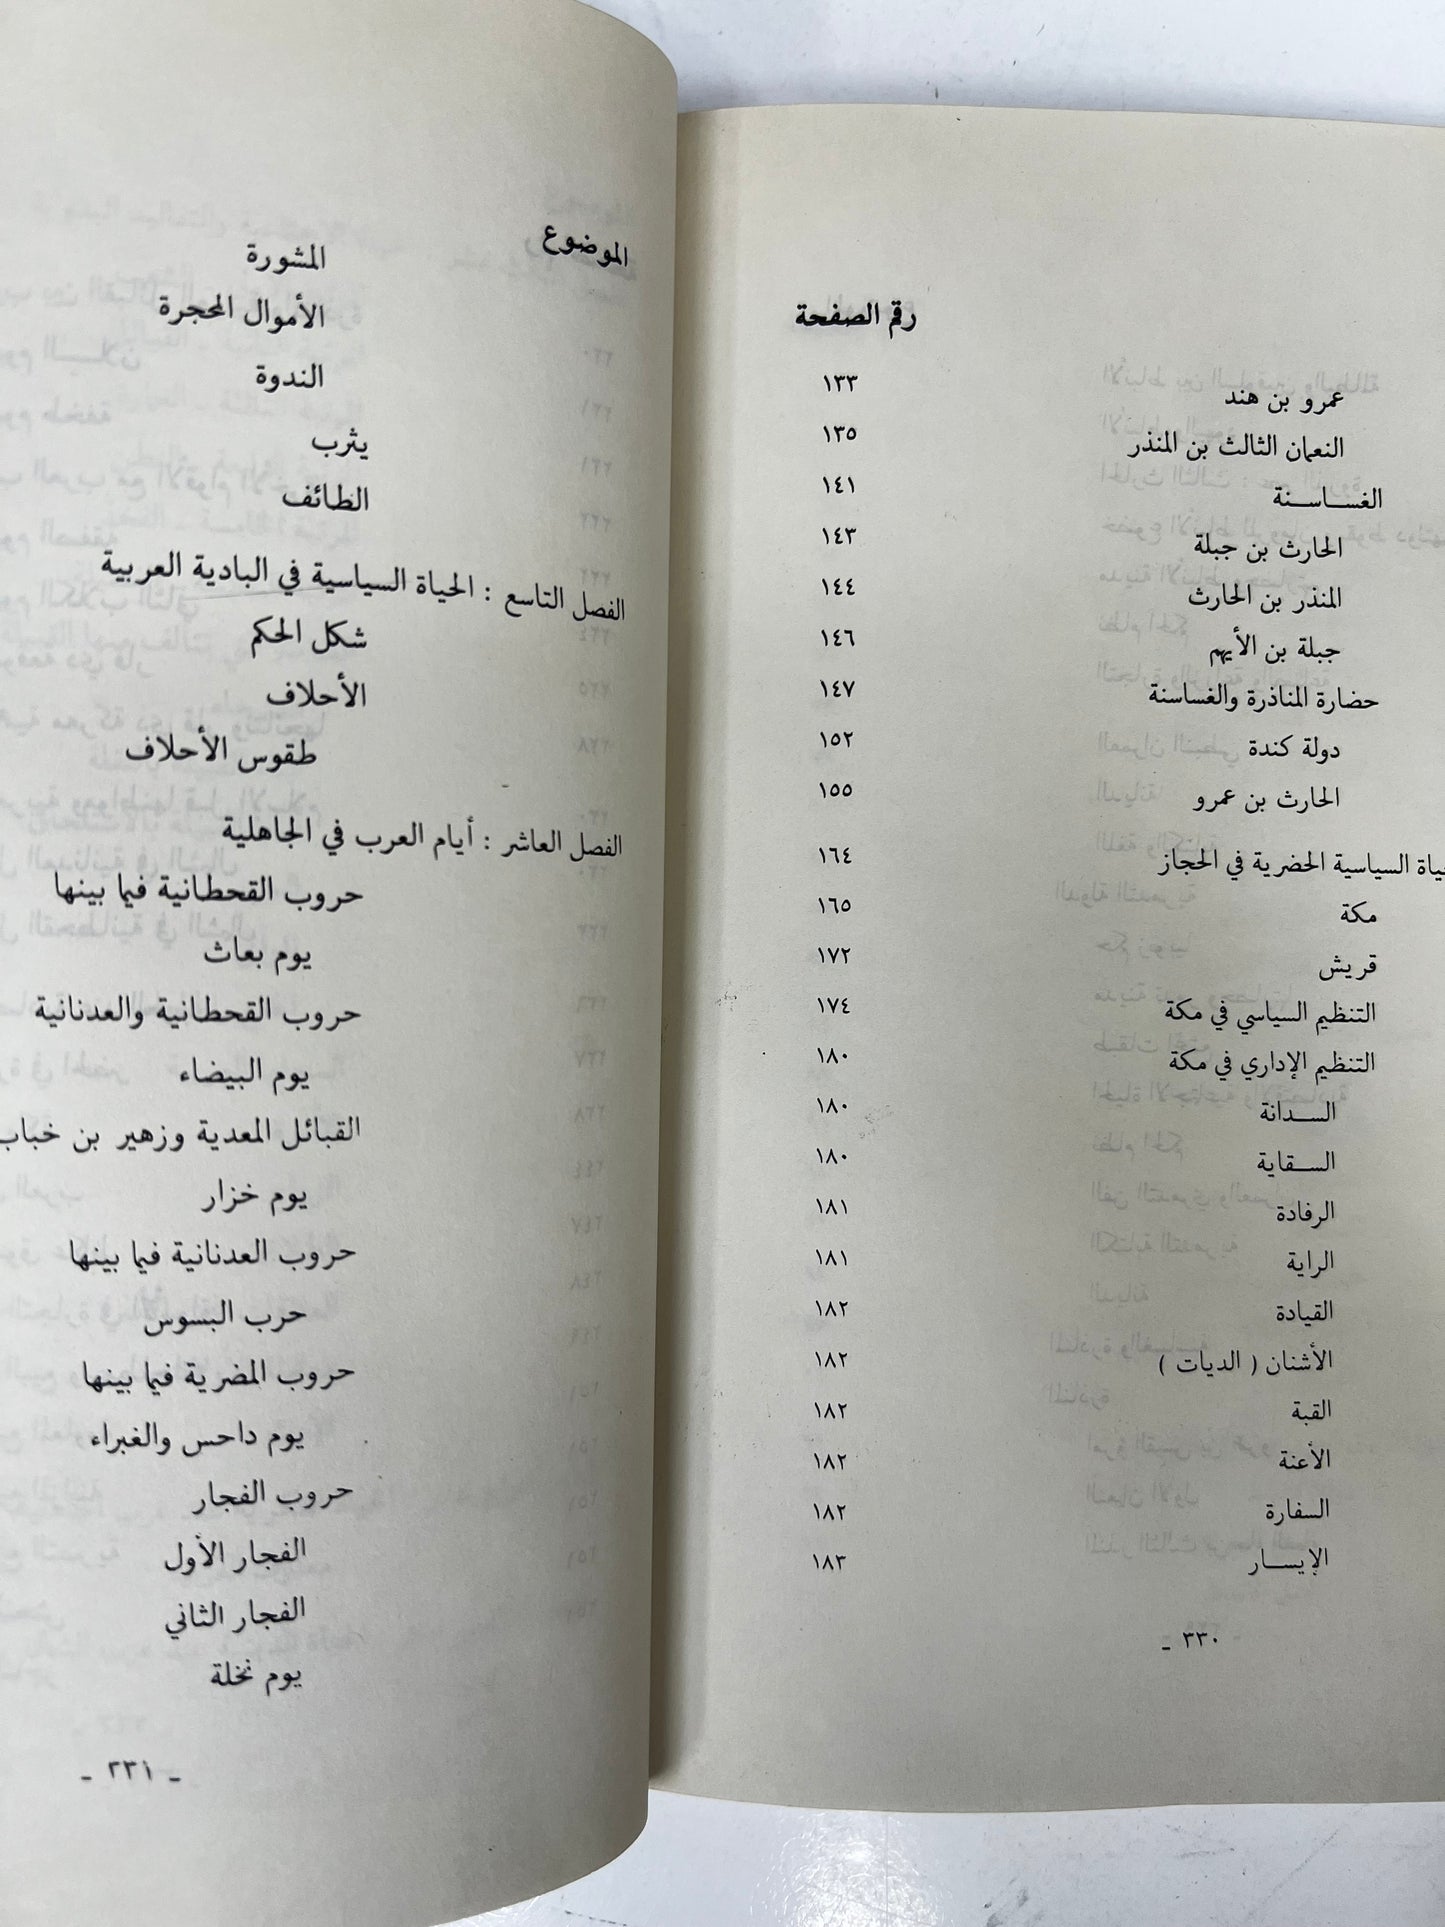 رقم الصفحة
عمرو بن هند ١٣٣
النعمان الثالث بن المنذر ١٣٥
الغساسنة ١٤١
الحارث بن جبلة ١٤٣
المنذر بن الحارث ١٤٤
جبلة بن الأيهم ١٤٦
حضارة المناذرة والغساسنة ١٤٧
دولة كندة ١٥٢
الحارث بن عمرو ١٥٥
السياسية الحضرية في الحجاز ١٦٤
مكة ١٦٥
قريش ١٧٢
التنظيم السياسي في مكة ١٧٤
التنظيم الإداري في مكة ١٨٠
السدانة ١٨٠
السقاية ١٨٠
الرفادة ١٨١
الراية ١٨١
القيادة ١٨٢
الأشنان ( الديات ) ١٨٢
القبة ١٨٢
الأعنة ١٨٢
السفارة ١٨٢
الإيسار ١٨٣
- ٣٣٠ -
الموضوع
المشورة
الأموال المحجرة
الندوة
يثرب
الطائف
الفصل التاسع : الحياة السياسية في البادية العربية
شكل الحكم
الأحلاف
طقوس الأحلاف
الفصل العاشر : أيام العرب في الجاهلية
حروب القحطانية فيما بينها
يوم بعاث
حروب القحطانية والعدنانية
يوم البيضاء
القبائل المعدية وزهير بن خباب
يوم خزار
حروب العدنانية فيما بينها
حرب البسوس
حروب المضرية فيما بينها
يوم داحس والغبراء
حروب الفجار
الفجار الأول
الفجار الثاني
يوم نخلة
- ٢٣١ -